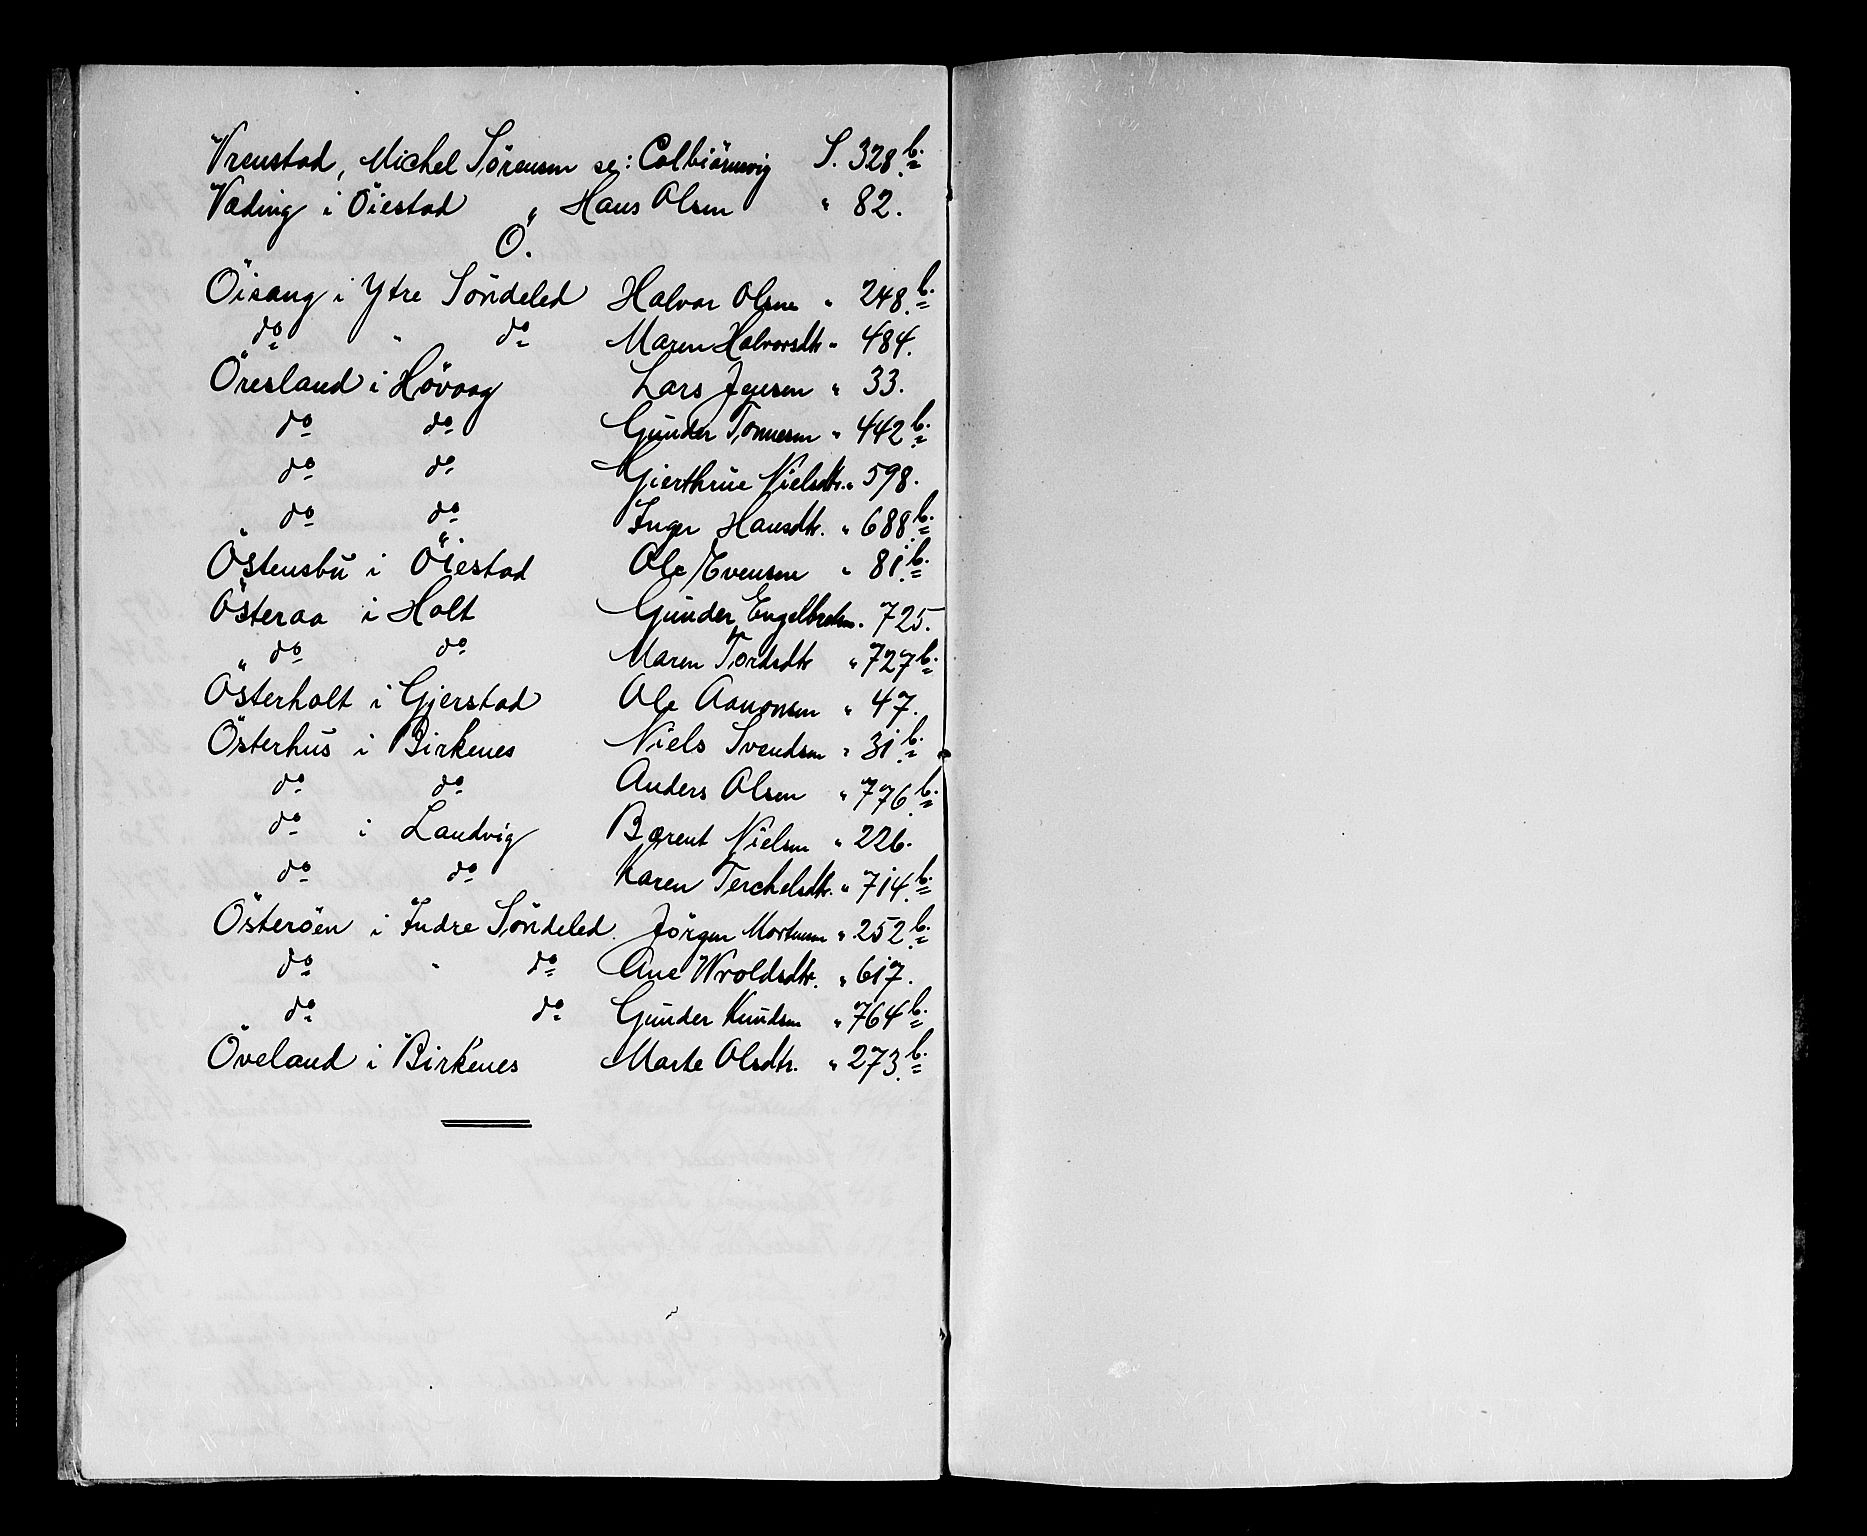 Vrenstad, Michel Sörensen se: Colbiörnsvig S. 328 b.
Væding i Öiestad Hans Olsen " 82.
Ö.
Öisang i Ytre Söndeled Halvor Olsen " 248 b.
do " do Maren Halvorsdtr " 484.
Öresland i Hövaag Lars Jensen " 33.
do do Gunder Tönnesen " 442 b.
do do Gierthrue Nielsdtr. " 598.
do do Inger Hansdtr. " 688 b.
Östensbu i Öiestad Ole Evensen " 81 b.
Österaa i Holt Gunder Engelbretsen. 725.
do do Maren Tordsdtr " 727 b.
Österholt i Gjerstad Ole Aanonsen " 47.
Österhus i Birkenes Niels Svendsen " 31 b.
do do Anders Olsen " 776 b.
do i Landvig Bærent Nielsen " 226.
do do Karen Terchelsdtr. " 714 b.
Österöen i Indre Söndeled. Jörgen Mortensen " 252 b.
do " do Ane Wroldsdtr. " 617.
do do Gunder Knudsen " 764 b.
Öveland i Birkenes Marte Olsdtr. " 273 b.